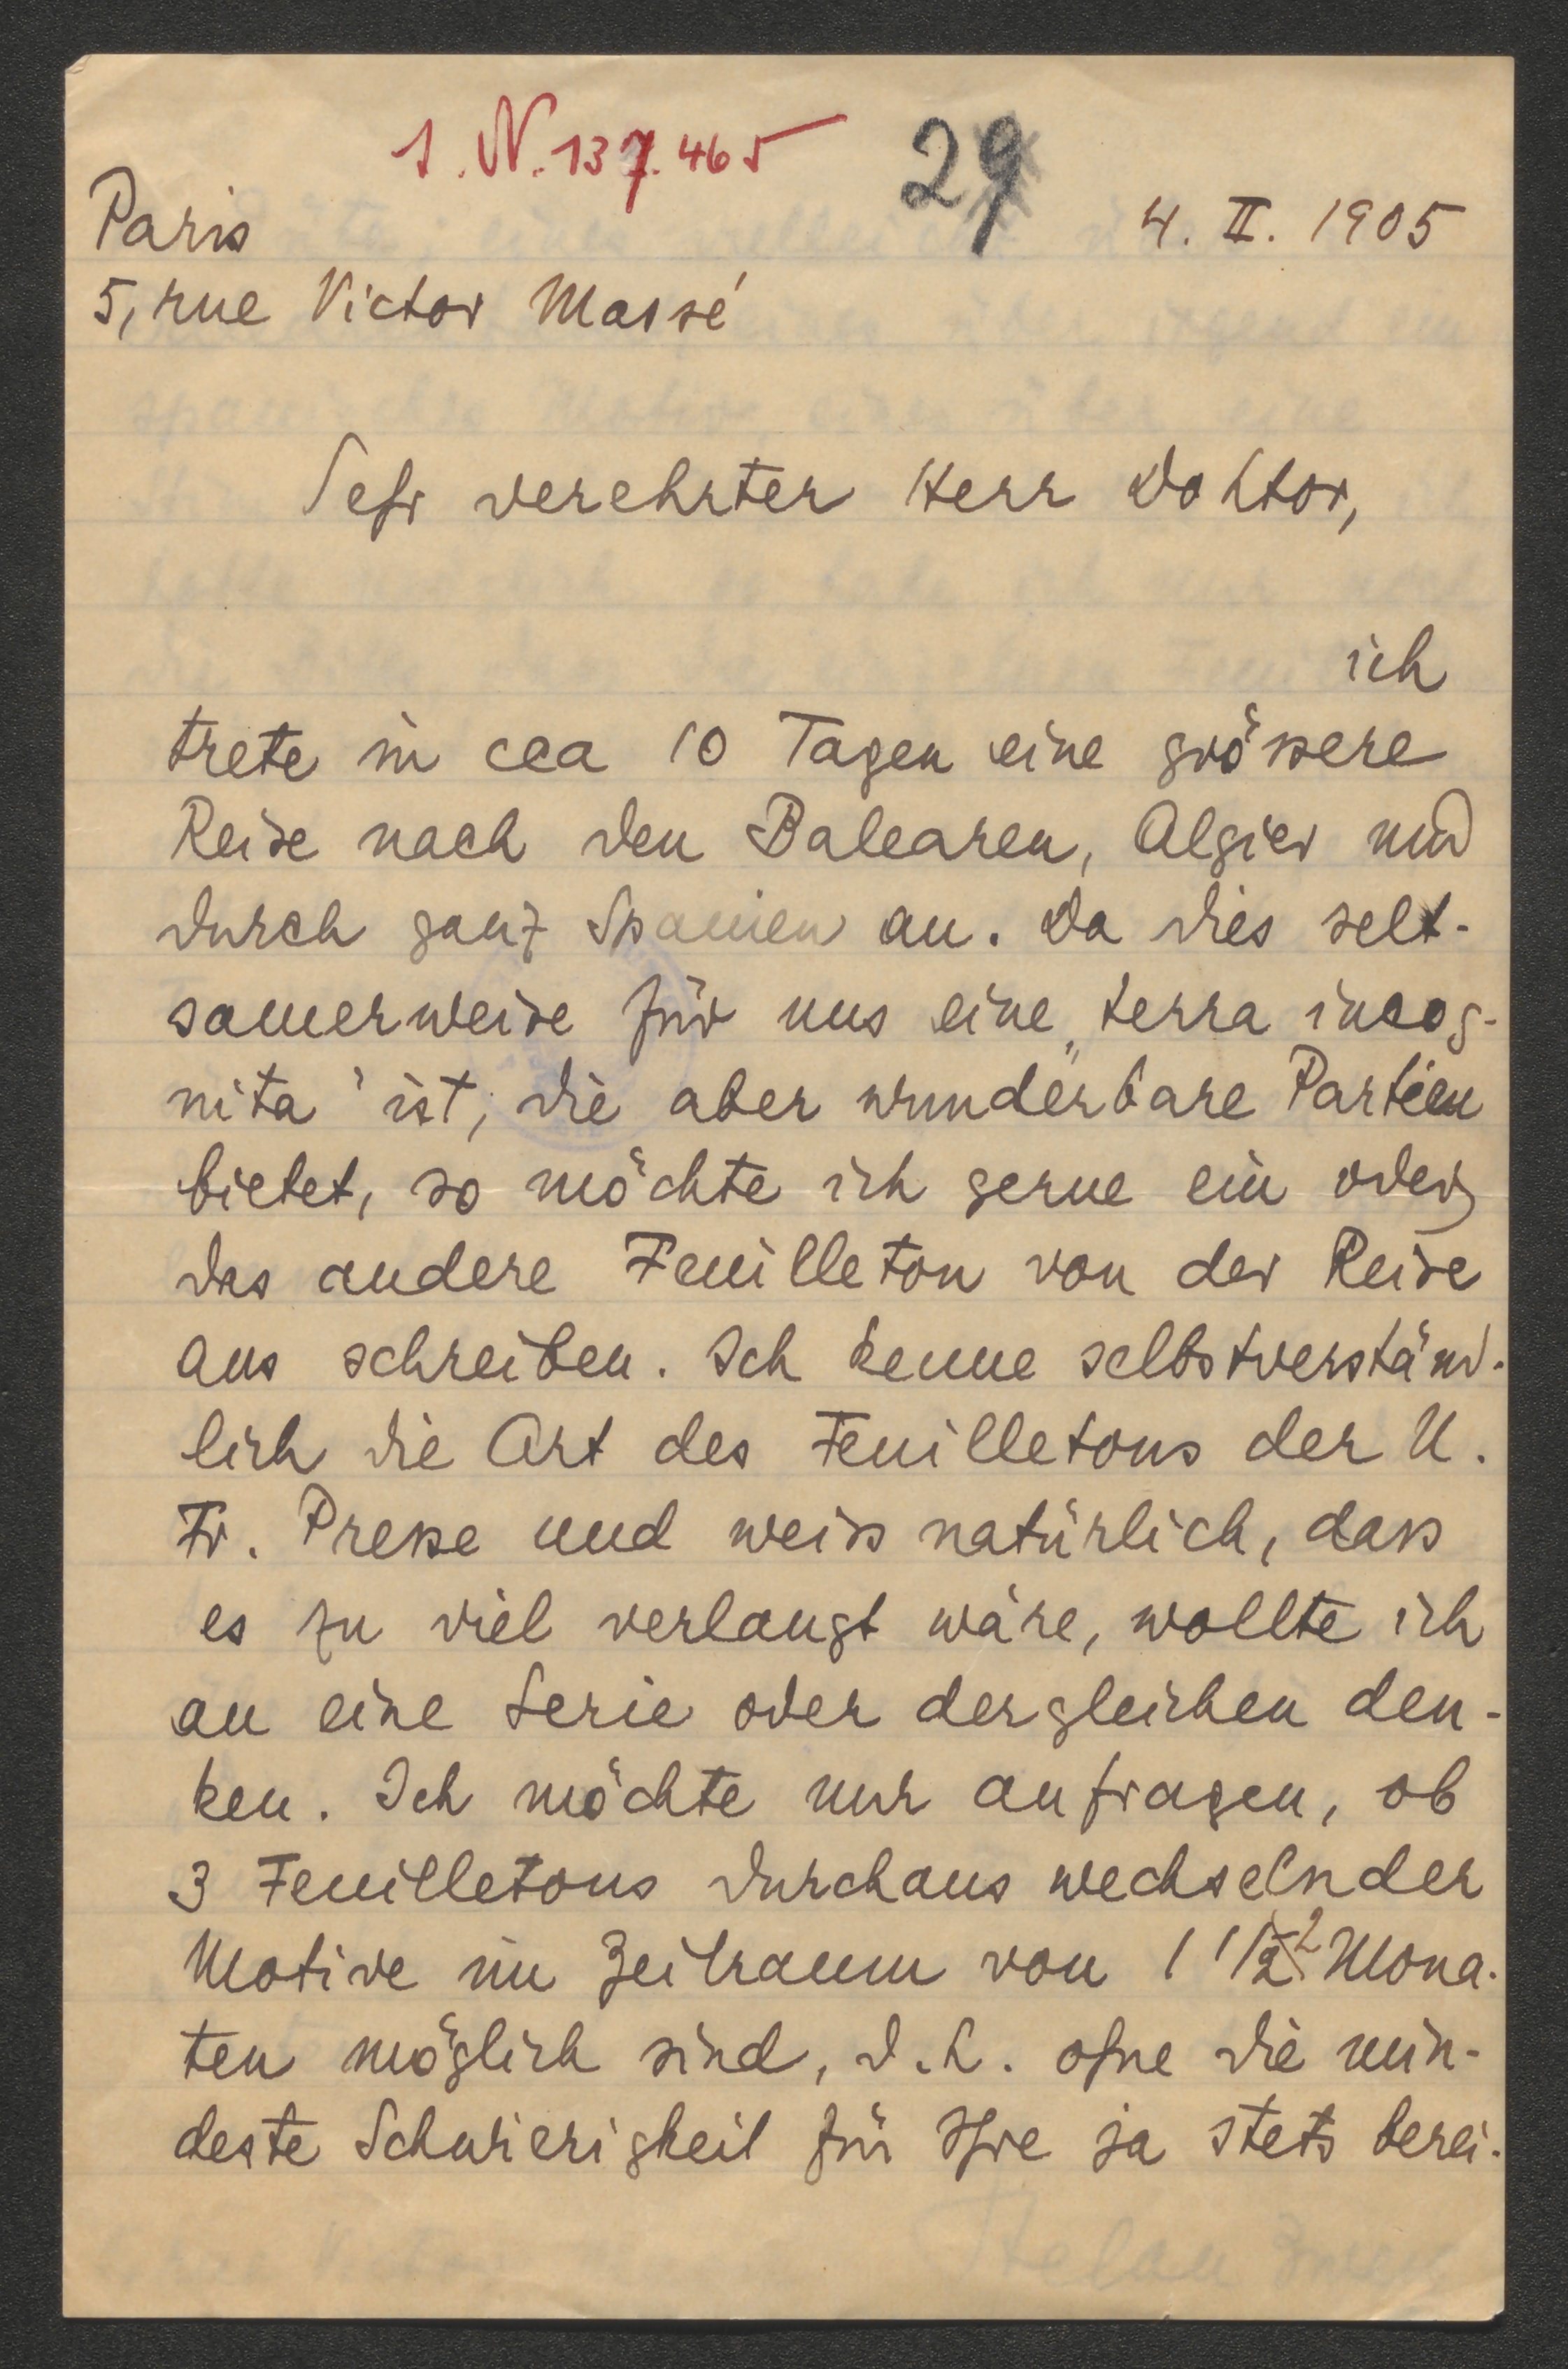 1. N. 137.465
29
Paris
4. II. 1905
5, rue Victor Massé
Sehr verehrter Herr Doktor,
ich
trete in cca 10 Tagen eine grössere
Reise nach den Balearen, Algier und
durch ganz Spanien an. Da dies selt-
samerweise für uns eine „terra incog-
nita' ist, die aber wunderbare Partien
bietet, so möchte ich gerne ein oder
das andere Feuilleton von der Reise
aus schreiben. Ich kenne selbstverständ-
lich die Art des Feuilletons der N.
Fr. Presse und weiss natürlich, dass
es zu viel verlangt wäre, wollte ich
an eine Serie oder dergleichen den-
ken. Ich möchte nur anfragen, ob
3 Feuilletons durchaus wechselnder
Motive im Zeitraum von 1 1/2 Mona-
ten möglich sind, d. h. ohne die min-
deste Schwierigkeit für Ihre ja stets berei-